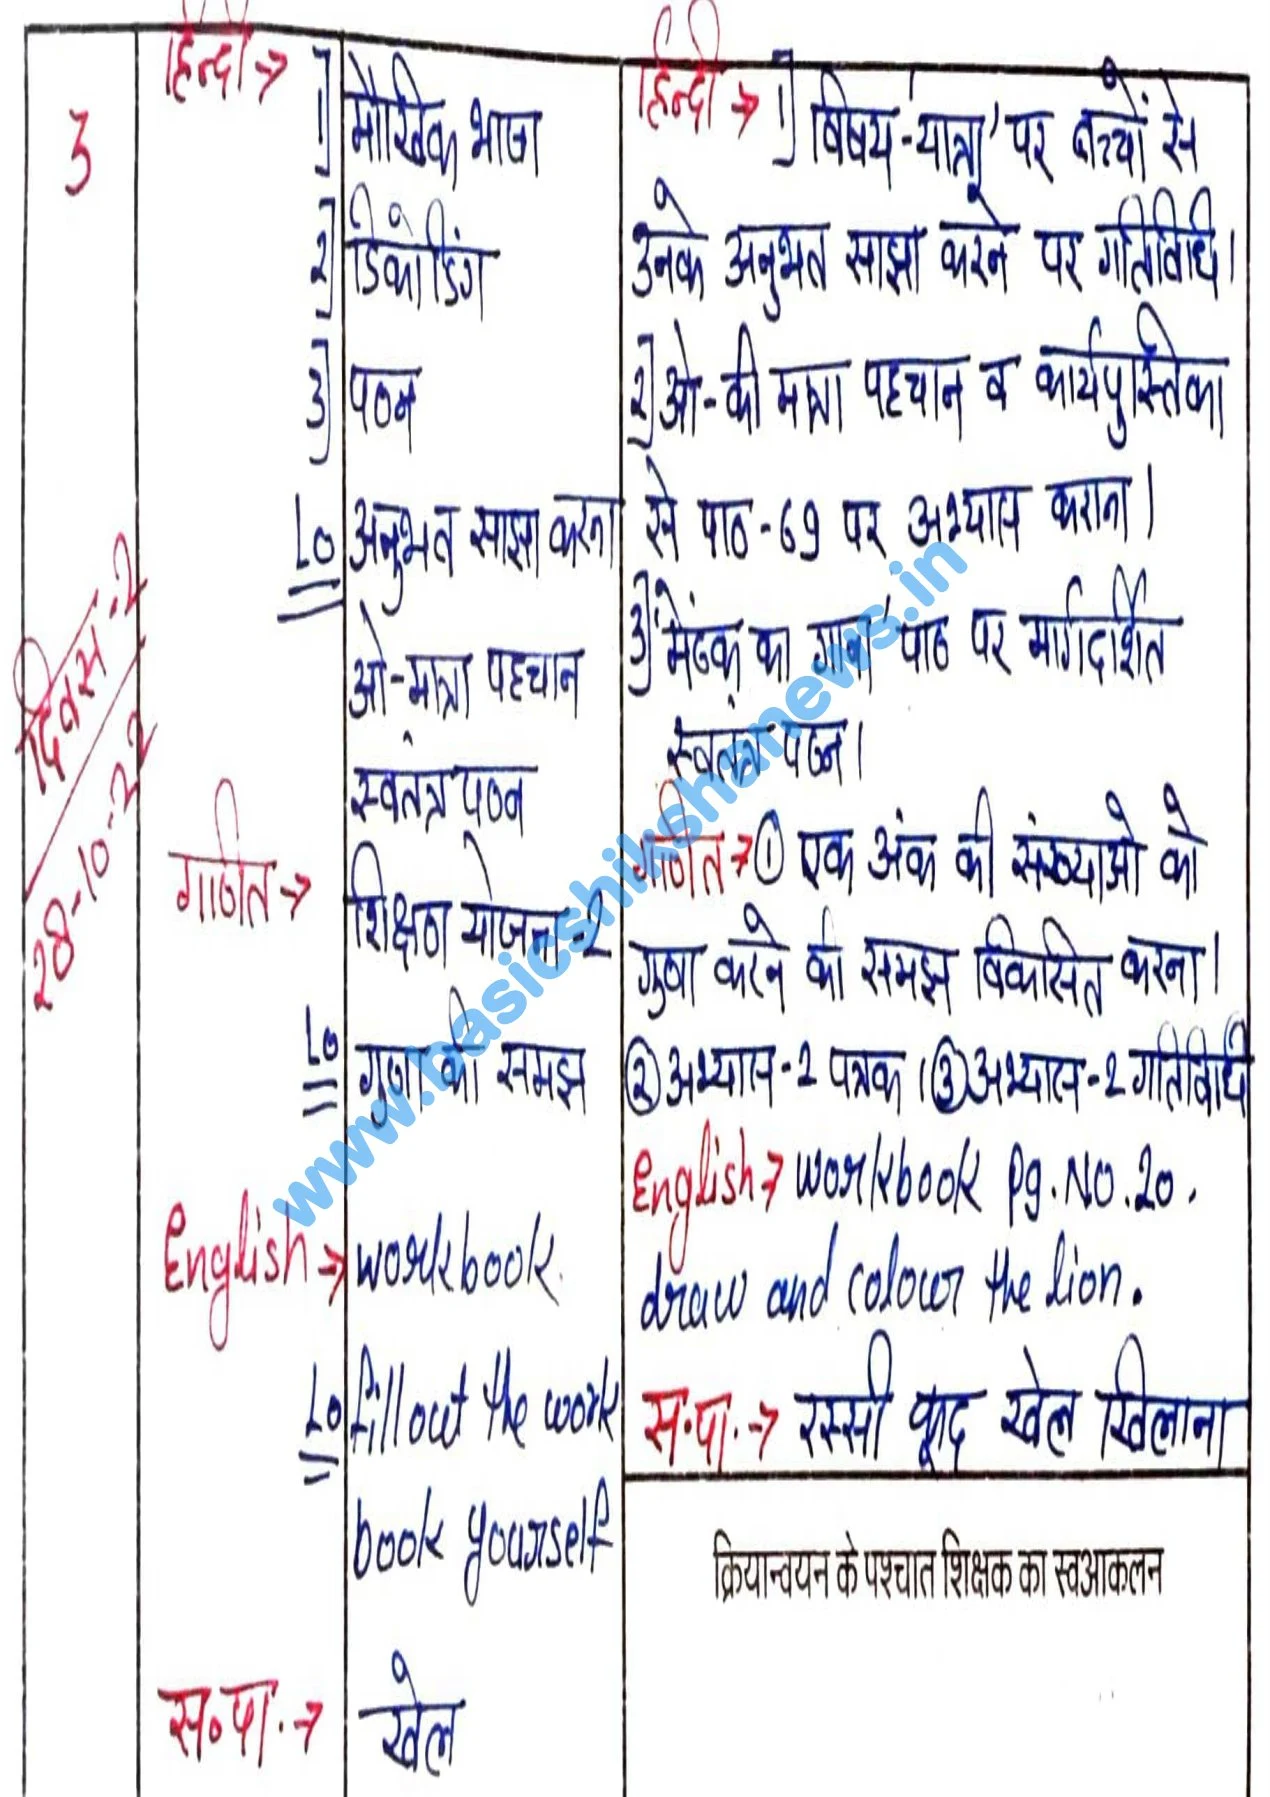 3
दिवस-2
28-10-22
हिन्दी →
1] मौखिक भाषा
2] डिकोडिंग
3] पठन
Lo अनुभव साझा करना
ओ-मात्रा पहचान
स्वतंत्र पठन
गणित →
शिक्षण योजना-2
Lo गुणा की समझ
English → workbook.
Lo fill out the work
book yourself
स.पा. → खेल
हिन्दी → 1] विषय-'यात्रा' पर बच्चों से
उनके अनुभव साझा करने पर गतिविधि।
2] ओ-की मात्रा पहचान व कार्यपुस्तिका
से पाठ-69 पर अभ्यास कराना।
3] 'मेंढक का गाना' पाठ पर मार्गदर्शित
स्वतंत्र पठन।
गणित → ① एक अंक की संख्याओ को
गुणा करने की समझ विकसित करना।
② अभ्यास-2 पत्रक। ③ अभ्यास-2 गतिविधि
English → workbook pg. No. 20.
draw and colour the lion.
स.पा. → रस्सी कूद खेल खिलाना
क्रियान्वयन के पश्चात शिक्षक का स्वआकलन
www.basicshikshanews.in